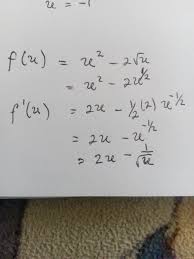 x = -1
f(x) = x² - 2√x
= x² - 2x^{1/2}
f'(x) = 2x - 1/2 (2) x^{-1/2}
= 2x - x^{-1/2}
= 2x - 1/√x